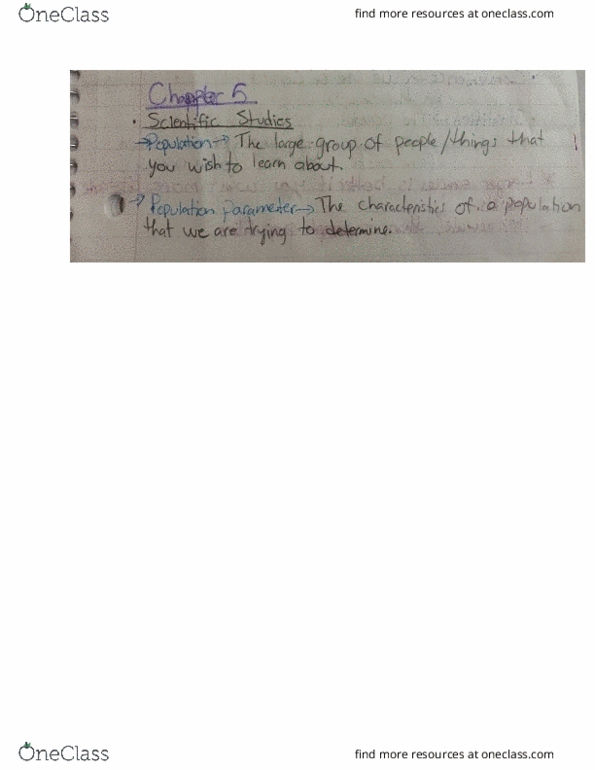 OneClass
find more resources at oneclass.com
Chapter 5
• Scientific Studies
→Population→ The large group of people/things that
you wish to learn about.
→ Population parameter→ The characteristics of a population
that we are trying to determine.
OneClass
find more resources at oneclass.com